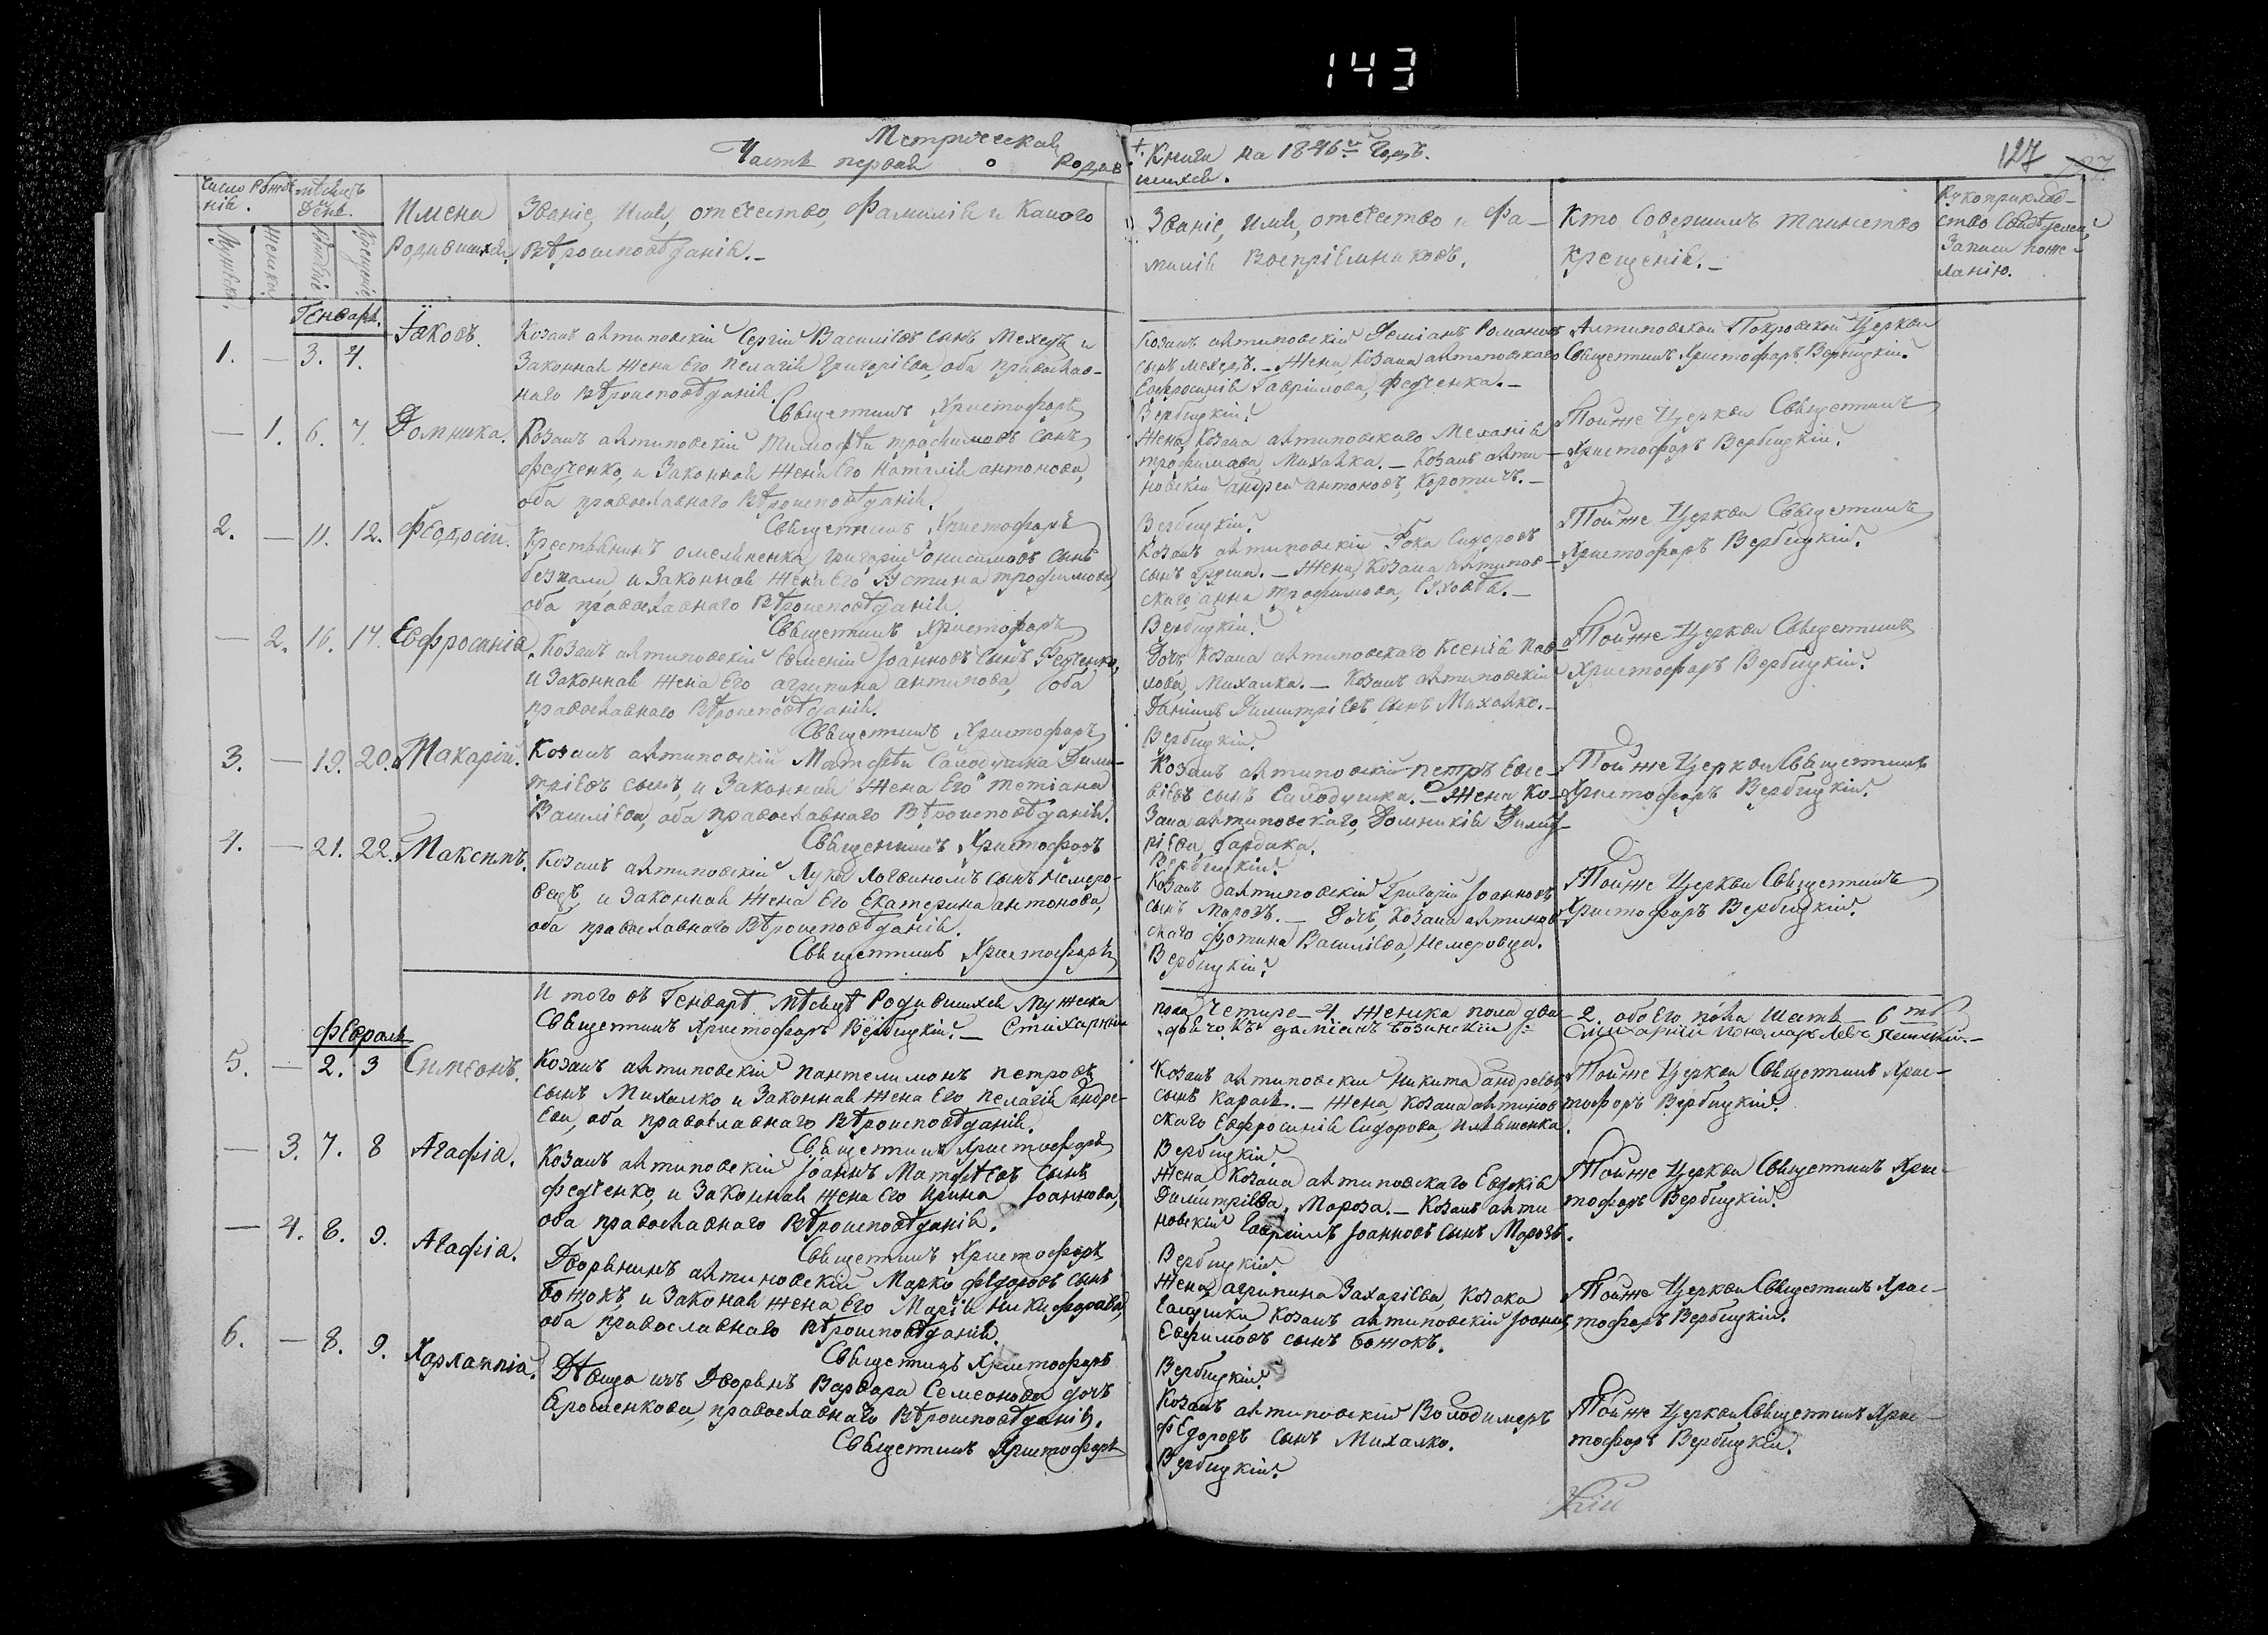 143
Метрической Книги на 1846й Годъ.
Часть первая о Родив
шихся.
127
Число рожде
нія.
Мѣсяцъ
и
День.
Имена
Родившихся.
Званіе, Имя, отечество, Фамилія и Какого
Вѣроисповѣданія.-
Званіе, Имя, отечество и Фа-
милія Воспріѣмниковъ.
Кто Совершилъ таинство
Крещенія.-
Рукоприклад-
ство Свидѣтелей
Записи поже-
ланію.
Мужска.
Женска.
Рожденіе.
Крещеніе.
Генварь.
1. — 3. 4. Іаковъ.
Козакъ антиповскій Сергій Василіевъ сынъ Мехедъ и
Законная Жена Его Пелагія Григоріева, оба православ-
наго Вѣроисповѣданія.
Священникъ Христофоръ
Козакъ антиповскій Деміанъ Романовъ
сынъ Мехедъ.- Жена Козака антиповскаго
Евфросинія Гавріилова, Федченка.-
Вербицкій
Антиповской Покровской Церкви
Священникъ Христофоръ Вербицкій.
— 1. 6. 7. Домника.
Козакъ антиповскій Тимофѣй трофимовъ сынъ
Федченко, и Законная Жена Его Наталія антонова,
оба православнаго Вѣроисповѣданія.
Священникъ Христофоръ
Жена Козака антиповскаго Меланія
трофимова, Михалка.- Козакъ анти-
повскій андрей антоновъ, Коротичъ.-
Вербицкій
Тойже Церкви Священникъ
Христофоръ Вербицкій.
2. — 11. 12. Феодосій.
Крестьянинъ омельяненка Григорій онисимовъ сынъ
безпали и Законная Жена Его Устина трофимова,
оба православнаго Вѣроисповѣданія.
Священникъ Христофоръ
Козакъ антиповскій Фока Сидоровъ
сынъ Груша.- Жена Козака антипов-
скаго анна трофимова,
Вербицкій
Тойже Церкви Священникъ
Христофоръ Вербицкій.
— 2. 16. 17. Евфросинія.
Козакъ антиповскій Евменій Іоанновъ Сынъ Федченко,
и Законная Жена Его агрипина антипова, оба
православнаго Вѣроисповѣданія.
Священникъ Христофоръ
Дочь Козака антиповскаго Ксенія Пав-
лова, Михалка.- Козакъ антиповскій
Даніилъ Димитріевъ сынъ Михалко.-
Вербицкій
Тойже Церкви Священникъ
Христофоръ Вербицкій.
3. — 19. 20. Макарій.
Козакъ антиповскій Матфѣй Самодушка Дими-
тріевъ сынъ, и Законная Жена Его Тетіана
Василіева, оба православнаго Вѣроисповѣданія.
Священникъ Христофоръ
Козакъ антиповскій петръ Евсе-
віевъ сынъ Самодушка.- Жена Ко-
зака антиповскаго, Домникія Димит-
ріева Гардака.
Вербицкій
Тойже Церкви Священникъ
Христофоръ Вербицкій.
4. — 21. 22. Максимъ.
Козакъ антиповскій Лука Логвиновъ сынъ Немеро-
вецъ, и Законная Жена Его Екатерина антонова,
оба православнаго Вѣроисповѣданія.
Священникъ Христофоръ
Козакъ антиповскій Григорій Іоанновъ
сынъ Морозъ.- Дочь Козака антипов-
скаго фотина Василіева, Немеровца.
Вербицкій
Тойже Церкви Священникъ
Христофоръ Вербицкій.
И того въ Генварѣ Мѣсяцѣ Родившихся Мужска пола Четыре - 4. Женска пола два - 2. обоЕго пола Шесть - 6
Священникъ Христофоръ Вербицкій.- Стихарный дьячокъ
Февраль
5. — 2. 3 Симеонъ.
Козакъ антиповскій пантелимонъ петровъ
сынъ Михалко и Законная Жена Его Пелагія андре-
ева, оба православнаго Вѣроисповѣданія.
Священникъ Христофоръ
Козакъ антиповскій Никита андреевъ
сынъ Карась.- Жена Козака антипов-
скаго Евфросинія Сидорова, Ильяшенка.
Вербицкій
Тойже Церкви Священникъ Хрис-
тофоръ Вербицкій.
— 3. 7. 8 Агафія.
Козакъ антиповскій Іоаннъ Матфѣевъ Сынъ
Федченко, и Законная Жена Его Ирина Іоаннова,
оба православнаго Вѣроисповѣданія.
Священникъ Христофоръ
Жена Козака антиповскаго Евдокія
Димитріева, Мороза.- Козакъ анти-
повскій Гавріилъ Іоанновъ сынъ Морозъ.
Вербицкій
Тойже Церкви Священникъ Хрис-
тофоръ Вербицкій.
— 4. 8. 9. Агафія.
Дворянинъ антиповскій Марко Федоровъ сынъ
Божокъ, и Законая Жена Его Марія Никифорова,
оба православнаго Вѣроисповѣданія.
Священникъ Христофоръ
Жена агрипина Захаріева, Козака
Козакъ антиповскій Іоаннъ
Евфимовъ сынъ Божокъ.
Вербицкій
Тойже Церкви Священникъ Хрис-
тофоръ Вербицкій.
6. — 8. 9. Харлампій.
Дѣвица изъ Дворянъ Варвара Семеонова дочь
Ярошенкова, православнаго Вѣроисповѣданія.
Священникъ Христофоръ
Козакъ антиповскій Володимеръ
Федоровъ сынъ Михалко.
Вербицкій
Тойже Церкви Священникъ Хрис-
тофоръ Вербицкій.